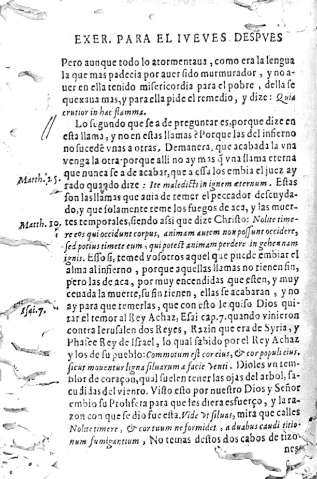 EXER. PARA EL IVEVES DESPVES
Pero aunque todo lo atormentaua, como era la lengua
la que mas padecia por auer sido murmurador, y no a-
uer en ella tenido misericordia para el pobre, della se
quexaua mas, y para ella pide el remedio, y dize: Quia
crucior in hac flamma.
Lo segundo que se a de preguntar es, porque dize en
esta llama, y no en estas llamas? Porque las del infierno
no sucedẽ vnas a otras. Demanera, que acabada la vna
venga la otra: porque alli no ay mas q̃ vna llama eterna
que nunca se a de acabar, que a essa los embia el juez ay
Matth. 25.
rado quando dize: Ite maledicti in ignem æternum. Estas
son las llamas que auia de temer el peccador descuyda-
do, y que solamente teme los fuegos de aca, y las muer-
tes temporales, siendo assi que dize Christo: Nolite time-
Matth. 10.
re eos qui occidunt corpus, animam autem non possunt occidere,
sed potius timete eum, qui potest animam perdere in gehennam
ignis. Esso si, temed vosotros aquel que puede embiar el
alma al infierno, porque aquellas llamas no tienen fin,
pero las de aca, por muy encendidas que esten, y muy
ceuada la muerte, su fin tienen, ellas se acabaran, y no
ay para que temerlas, que con esto le quiso Dios qui-
Isai. 7.
tar el temor al Rey Achaz, Esai cap. 7. quando vinieron
contra Ierusalen dos Reyes, Razin que era de Syria, y
Phasee Rey de Israel, lo qual sabido por el Rey Achaz
y los de su pueblo: Commotum est cor eius, & cor populi eius,
sicut mouentur ligna siluarum a facie venti. Dioles vn tem-
blor de coraçon, qual suelen tener las ojas del arbol, sa-
cudidas del viento. Visto esto por nuestro Dios y Señor
embio su Propheta para que les diera esfuerço, y la ra-
zon con que se dio fue esta. Vide vt sileas, mira que calles
Nolite timere, & cor tuum ne formidet, a duabus caudi titio-
num fumigantium, No temas destos dos cabos de tizo-
nes